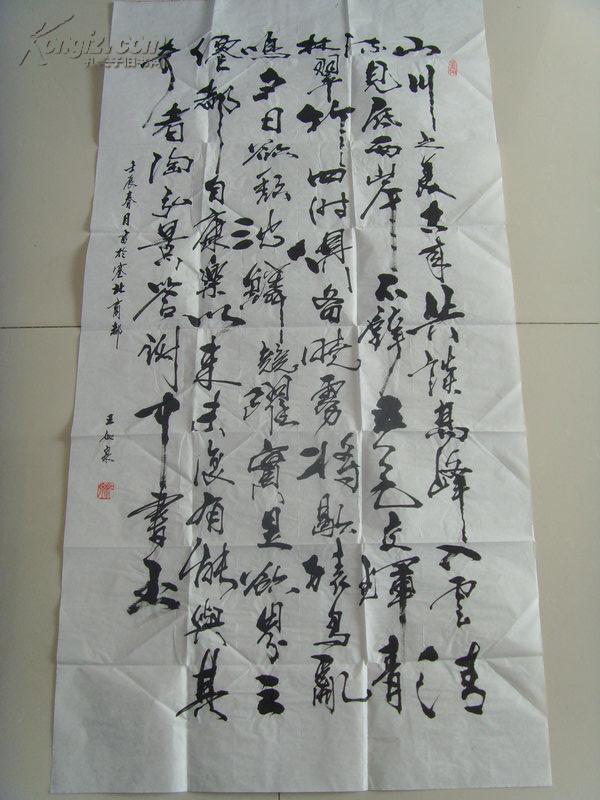 山川之美古来共談高峰入雲清
流見底兩岸石壁五色交輝青
林翠竹四时俱备曉雾将歇猿鳥亂
鳴夕日欲頹沈鳞競躍實是欲界之
僊都自康樂以来未復有能與其
奇者陶弘景答谢中書書
壬辰春月書於塞北商都
Kongfz.com
孔夫子旧书网